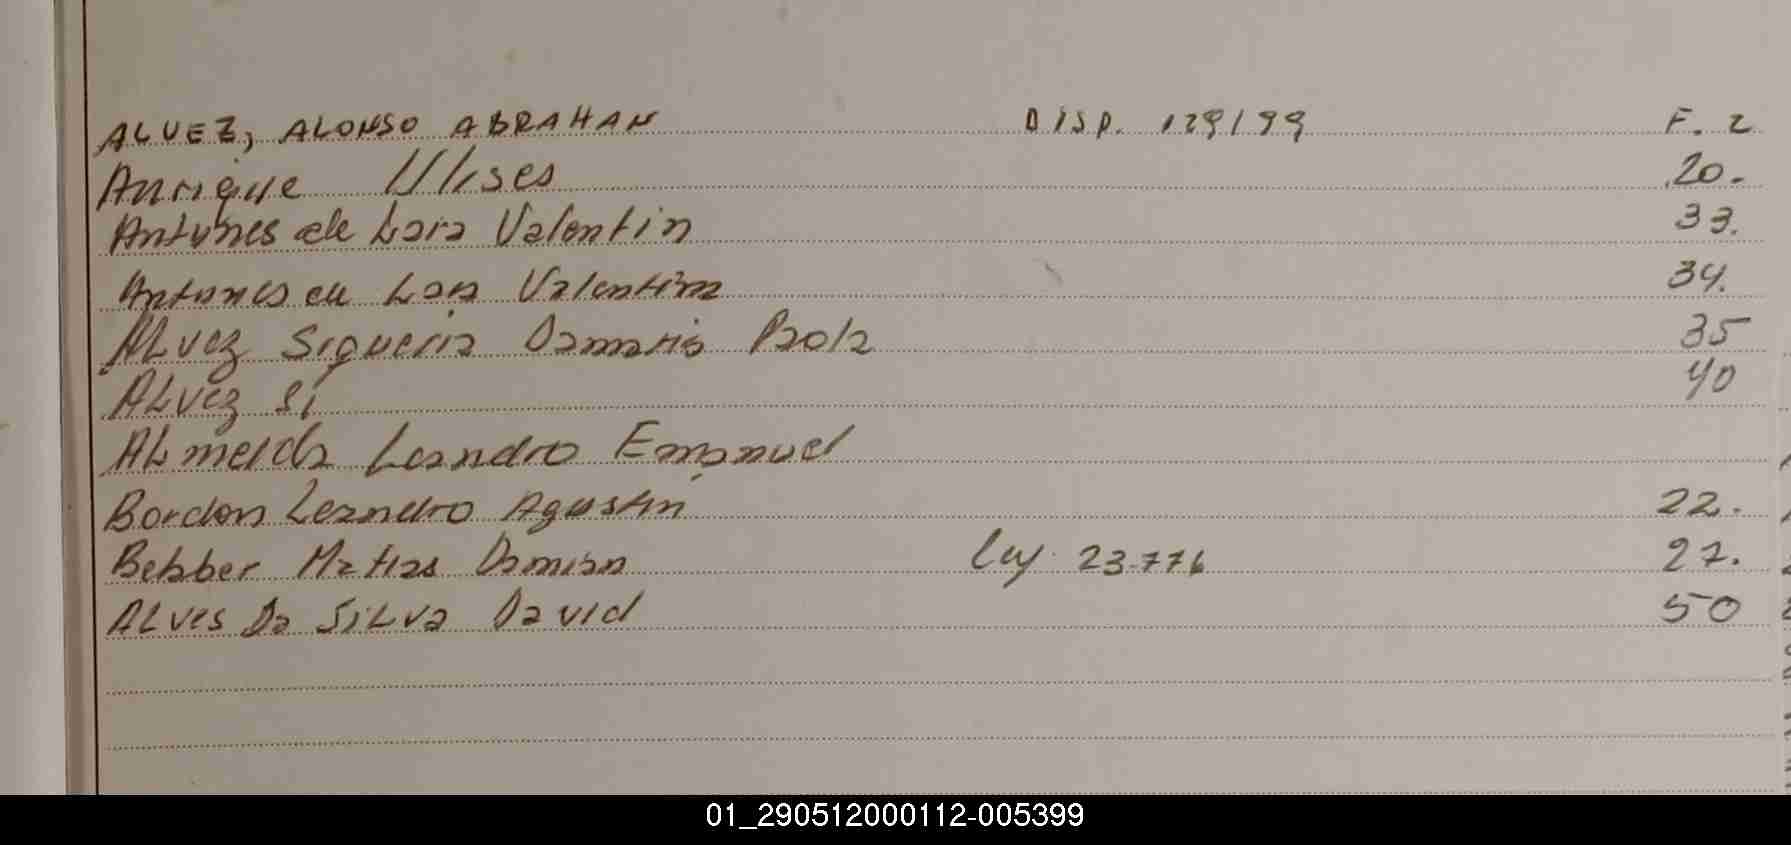 ALVEZ, ALONSO ABRAHAN DISP. 129/99 F. 2
Anrique Ulises 20.
Antunes de Lara Valentin 33.
Antunes de Lara Valentina 34.
ALvez Sigueria Damaris Paola 35
ALvez Si 40
ALmeida Leandro Emanuel
Bordon Leandro Agustin 22.
Bebber Matias Damian Ley 23.776 27.
ALves Da SiLva David 50
01_290512000112-005399